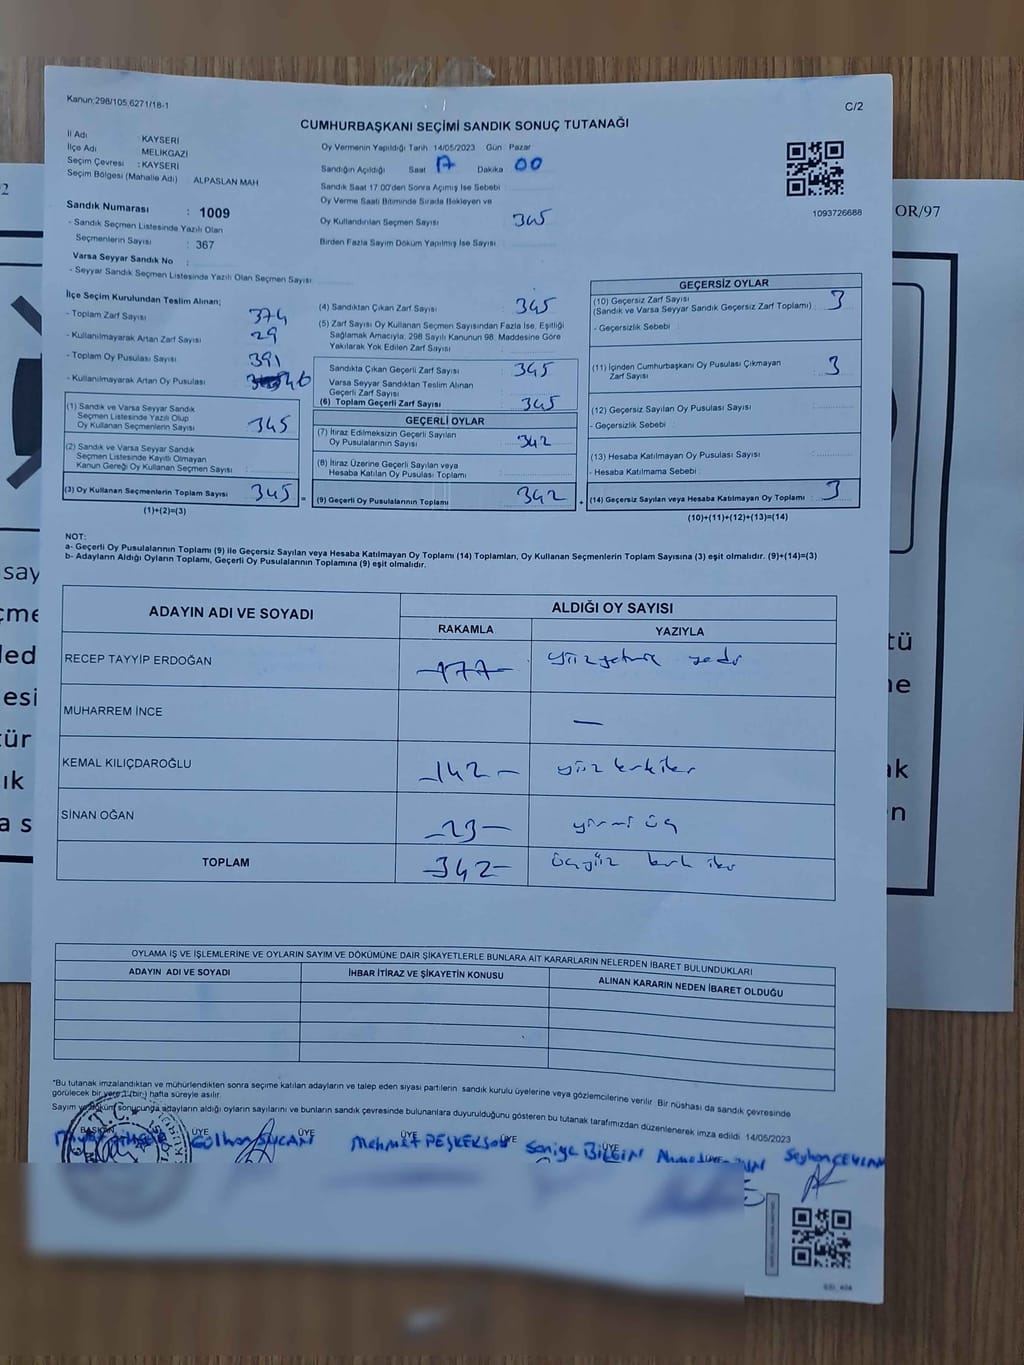 Kanun;298/105,6271/18-1
C/2
CUMHURBAŞKANI SEÇİMİ SANDIK SONUÇ TUTANAĞI
İl Adı KAYSERİ
İlçe Adı MELİKGAZİ
Seçim Çevresi : KAYSERİ
Seçim Bölgesi (Mahalle Adı) ALPASLAN MAH
Sandık Numarası : 1009
- Sandık Seçmen Listesinde Yazılı Olan
Seçmenlerin Sayısı : 367
Varsa Seyyar Sandık No :
- Seyyar Sandık Seçmen Listesinde Yazılı Olan Seçmen Sayısı:
Oy Vermenin Yapıldığı Tarih 14/05/2023 Gün Pazar
Sandığın Açıldığı Saat 17 Dakika 00
Sandık Saat 17.00'den Sonra Açımış İse Sebebi
Oy Verme Saati Bitiminde Sırada Bekleyen ve
Oy Kullandırılan Seçmen Sayısı 345
Birden Fazla Sayım Döküm Yapılmış İse Sayısı
1093726688
OR/97
İlçe Seçim Kurulundan Teslim Alınan;
- Toplam Zarf Sayısı 374
- Kullanılmayarak Artan Zarf Sayısı 29
- Toplam Oy Pusulası Sayısı 391
- Kullanılmayarak Artan Oy Pusulası 46
(1) Sandık ve Varsa Seyyar Sandık
Seçmen Listesinde Yazılı Olup
Oy Kullanan Seçmenlerin Sayısı 345
(2) Sandık ve Varsa Seyyar Sandık
Seçmen Listesinde Kayıtlı Olmayan
Kanun Gereği Oy Kullanan Seçmen Sayısı :
(3) Oy Kullanan Seçmenlerin Toplam Sayısı 345
(1)+(2)=(3)
(4) Sandıktan Çıkan Zarf Sayısı 345
(5) Zarf Sayısı Oy Kullanan Seçmen Sayısından Fazla İse, Eşitliği
Sağlamak Amacıyla, 298 Sayılı Kanunun 98. Maddesine Göre
Yakılarak Yok Edilen Zarf Sayısı
Sandıkta Çıkan Geçerli Zarf Sayısı 345
Varsa Seyyar Sandıktan Teslim Alınan
Geçerli Zarf Sayısı
(6) Toplam Geçerli Zarf Sayısı 345
GEÇERLİ OYLAR
(7) İtiraz Edilmeksizin Geçerli Sayılan
Oy Pusulalarının Sayısı 342
(8) İtiraz Üzerine Geçerli Sayılan veya
Hesaba Katılan Oy Pusulası Toplamı
(9) Geçerli Oy Pusulalarının Toplamı 342
GEÇERSİZ OYLAR
(10) Geçersiz Zarf Sayısı 3
(Sandık ve Varsa Seyyar Sandık Geçersiz Zarf Toplamı)
- Geçersizlik Sebebi
(11) İçinden Cumhurbaşkanı Oy Pusulası Çıkmayan
Zarf Sayısı 3
(12) Geçersiz Sayılan Oy Pusulası Sayısı
- Geçersizlik Sebebi
(13) Hesaba Katılmayan Oy Pusulası Sayısı
- Hesaba Katılmama Sebebi
(14) Geçersiz Sayılan veya Hesaba Katılmayan Oy Toplamı : 3
(10)+(11)+(12)+(13)=(14)
NOT:
a- Geçerli Oy Pusulalarının Toplamı (9) ile Geçersiz Sayılan veya Hesaba Katılmayan Oy Toplamı (14) Toplamları, Oy Kullanan Seçmenlerin Toplam Sayısına (3) eşit olmalıdır. (9)+(14)=(3)
b- Adayların Aldığı Oyların Toplamı, Geçerli Oy Pusulalarının Toplamına (9) eşit olmalıdır.
ADAYIN ADI VE SOYADI ALDIĞI OY SAYISI
RAKAMLA YAZIYLA
RECEP TAYYİP ERDOĞAN -177- yüzyetmiş yedi
MUHARREM İNCE —
KEMAL KILIÇDAROĞLU -142- yüz kırkiki
SİNAN OĞAN -23- yirmi üç
TOPLAM -342- üçyüz kırk iki
OYLAMA İŞ VE İŞLEMLERİNE VE OYLARIN SAYIM VE DÖKÜMÜNE DAİR ŞİKAYETLERLE BUNLARA AİT KARARLARIN NELERDEN İBARET BULUNDUKLARI
ADAYIN ADI VE SOYADI İHBAR İTİRAZ VE ŞİKAYETİN KONUSU ALINAN KARARIN NEDEN İBARET OLDUĞU
*Bu tutanak imzalandıktan ve mühürlendikten sonra seçime katılan adayların ve talep eden siyasi partilerin sandık kurulu üyelerine veya gözlemcilerine verilir. Bir nüshası da sandık çevresinde
görülecek bir yere 1 (bir) hafta süreyle asılır.
Sayım ve döküm sonucunda adayların aldığı oyların sayılarını ve bunların sandık çevresinde bulunanlara duyurulduğunu gösteren bu tutanak tarafımızdan düzenlenerek imza edildi. 14/05/2023
BAŞKAN ÜYE ÜYE ÜYE ÜYE ÜYE ÜYE
Mehmet PEŞKERSOY Saniye BİLGİN Seyhan CEYLAN